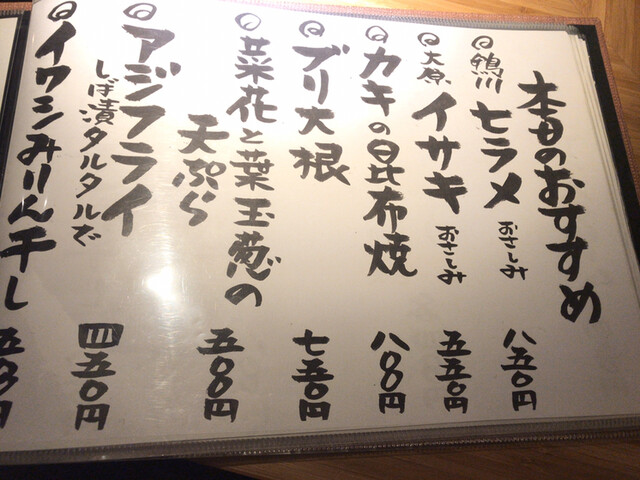 本日のおすすめ
鴨川 ヒラメ おさしみ 八五〇円
大原 イサキ おさしみ 五五〇円
カキの昆布焼 八〇〇円
ブリ大根 七五〇円
菜花と葉玉葱の
天ぷら 五〇〇円
アジフライ
しば漬タルタルで 四五〇円
イワシみりん干し 五〇〇円